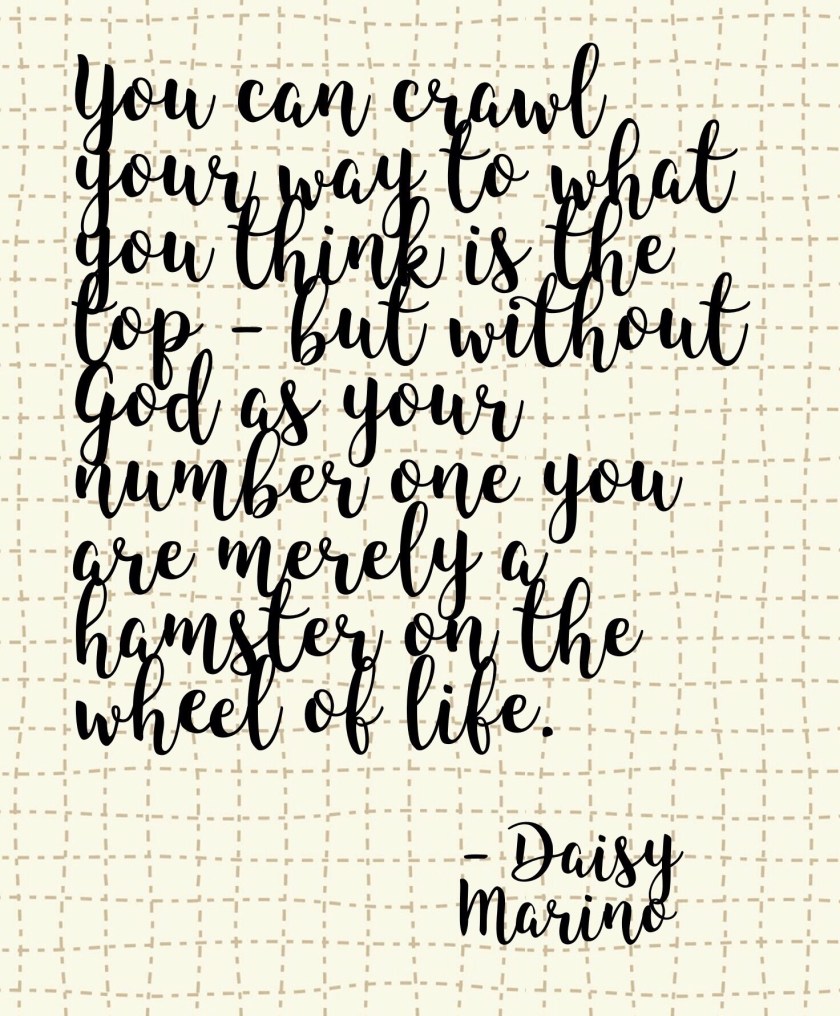 You can crawl
your way to what
you think is the
top - but without
God as your
number one you
are merely a
hamster on the
wheel of life.
- Daisy
Marino